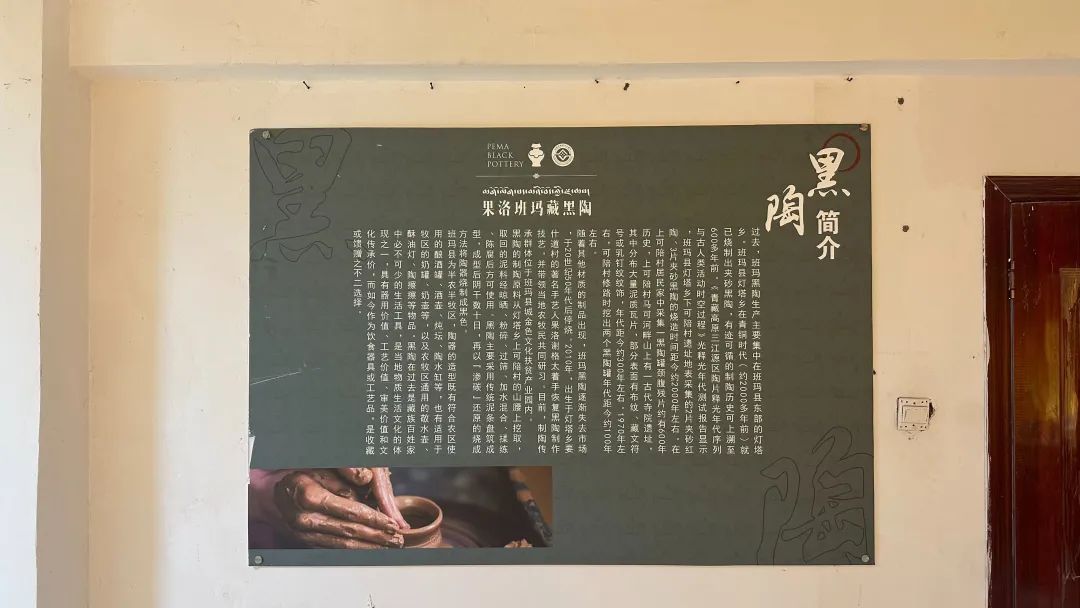 黑陶
简介
PEMA
BLACK
POTTERY
果洛班玛藏黑陶
过去，班玛黑陶生产主要集中在班玛县东部的灯塔
乡。班玛县灯塔乡在青铜时代（约2000多年前）就
已烧制出夹砂黑陶，有迹可循的制陶历史可上溯至
600多年前。《青藏高原三江源区陶片释光年代序列
与古人类活动时空过程》光释光年代测试报告显示
，班玛县灯塔乡下可陪村遗址地表采集的2片夹砂红
陶、3片夹砂黑陶的烧造时间距今约2000年左右，在
上可陪村居民家中采集一黑陶罐颈腹残片约有600年
历史，上可陪村马可河畔山上有一古代寺院遗址，
其中分布大量泥质瓦片，部分表面有布纹、藏文符
号或乳钉纹纹饰，年代距今约300年左右。1970年左
右，可陪村修路时挖出两个黑陶罐年代距今约100年
左右。
随着其他材质的制品出现，班玛黑陶逐渐失去市场
，于20世纪50年代后停烧。2010年，出生于灯塔乡要
什道村的著名手艺人果洛谢格太着手恢复黑陶制作
技艺，并带领当地农牧民共同研习。目前，制陶传
承群体位于班玛县城金色文化扶贫产业园内。
黑陶的制陶原料从灯塔乡上可陪村的山腰上挖取，
取回的泥料经晾晒、粉碎、过筛、加水混合、揉练
、陈腐后方可使用。黑陶主要采用传统泥条盘筑成
型，成型后阴干数十日，再以「渗碳」还原的烧成
方法将陶器烧制成黑色。
班玛县为半农半牧区，陶器的造型既有符合农区使
用的酿酒罐、酒壶、炖坛、陶水缸等，也有适用于
牧区的奶罐、奶壶等，以及农牧区通用的敬水壶、
酥油灯、陶擦擦等物品。黑陶在过去是藏族百姓家
中必不可少的生活工具，是当地物质生活文化的体
现之一，具有器用价值、工艺价值、审美价值和文
化传承价，而如今作为饮食器具或工艺品，是收藏
或馈赠之不二选择。
黑
陶